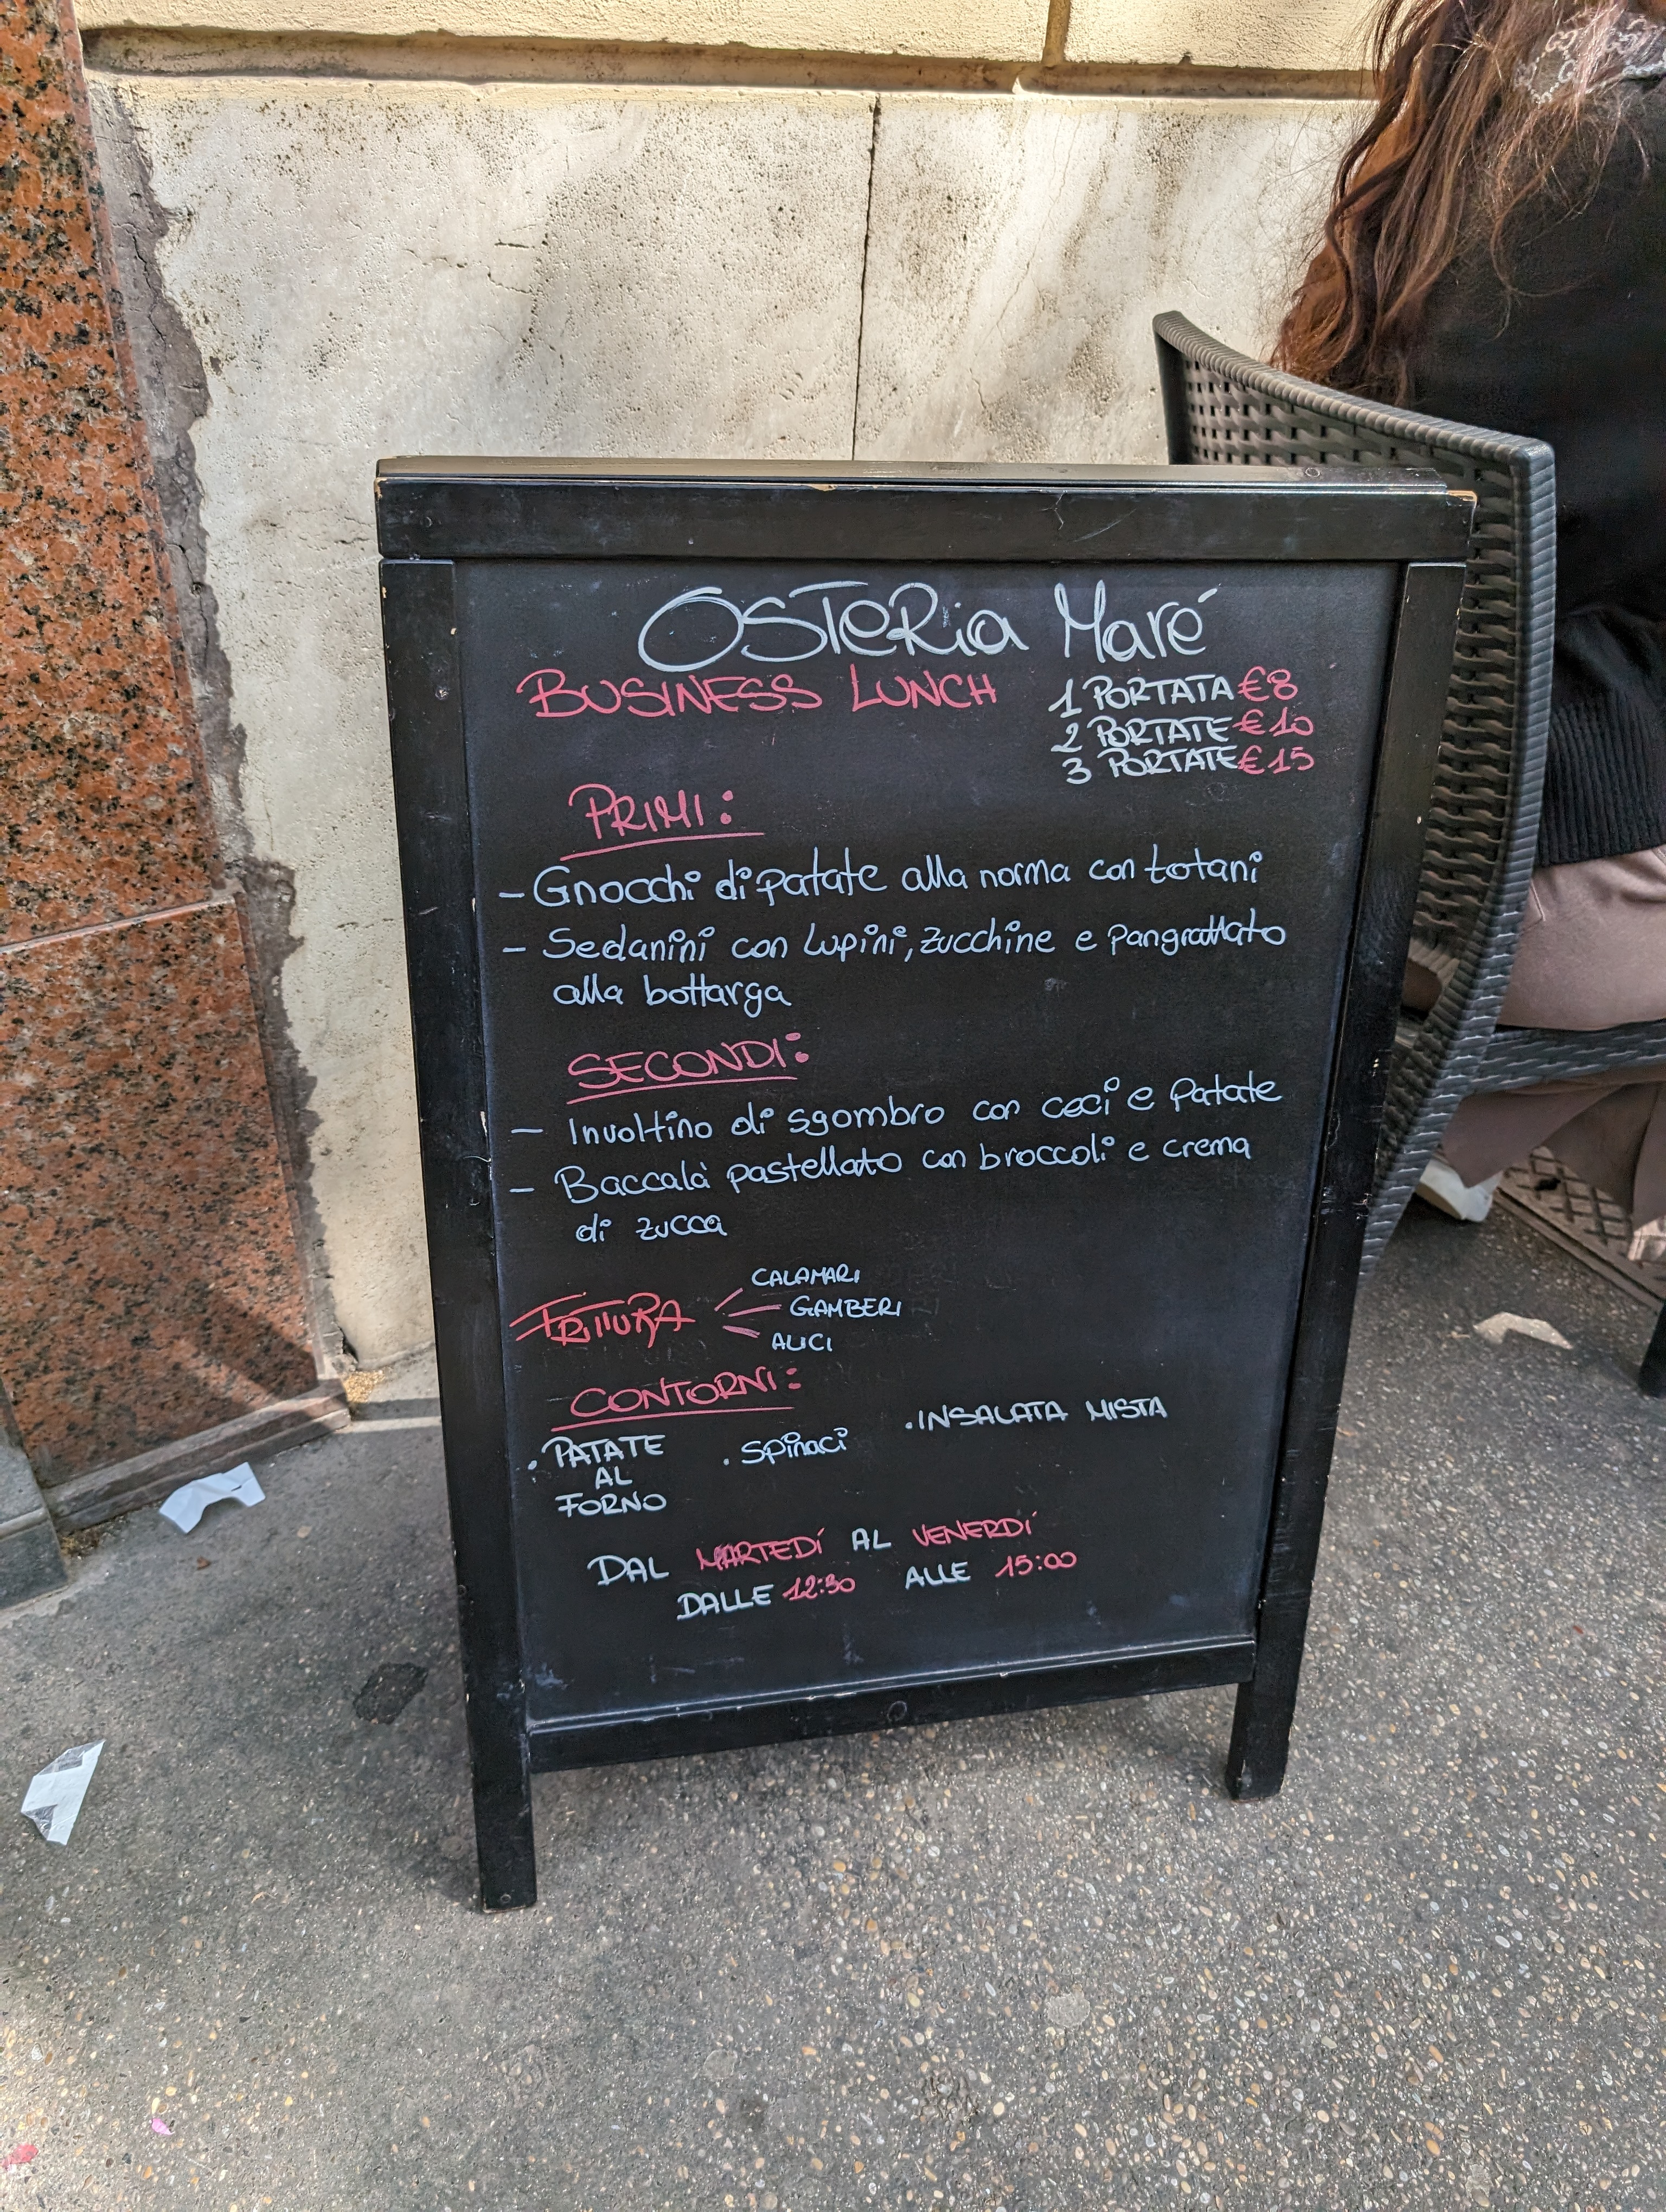 OSTERia Maré
BUSINESS LUNCH
1 PORTATA €8
2 PORTATE €10
3 PORTATE €15
PRIMI:
- Gnocchi di patate alla norma con totani
- Sedanini con Lupini, zucchine e pangrattato
alla bottarga
SECONDI:
- Involtino di sgombro con ceci e patate
- Baccalà pastellato con broccoli e crema
di zucca
FRITTURA
CALAMARI
GAMBERI
ALICI
CONTORNI:
. PATATE
AL
FORNO
. Spinaci
. INSALATA MISTA
DAL MARTEDÍ AL VENERDÍ
DALLE 12:30 ALLE 15:00